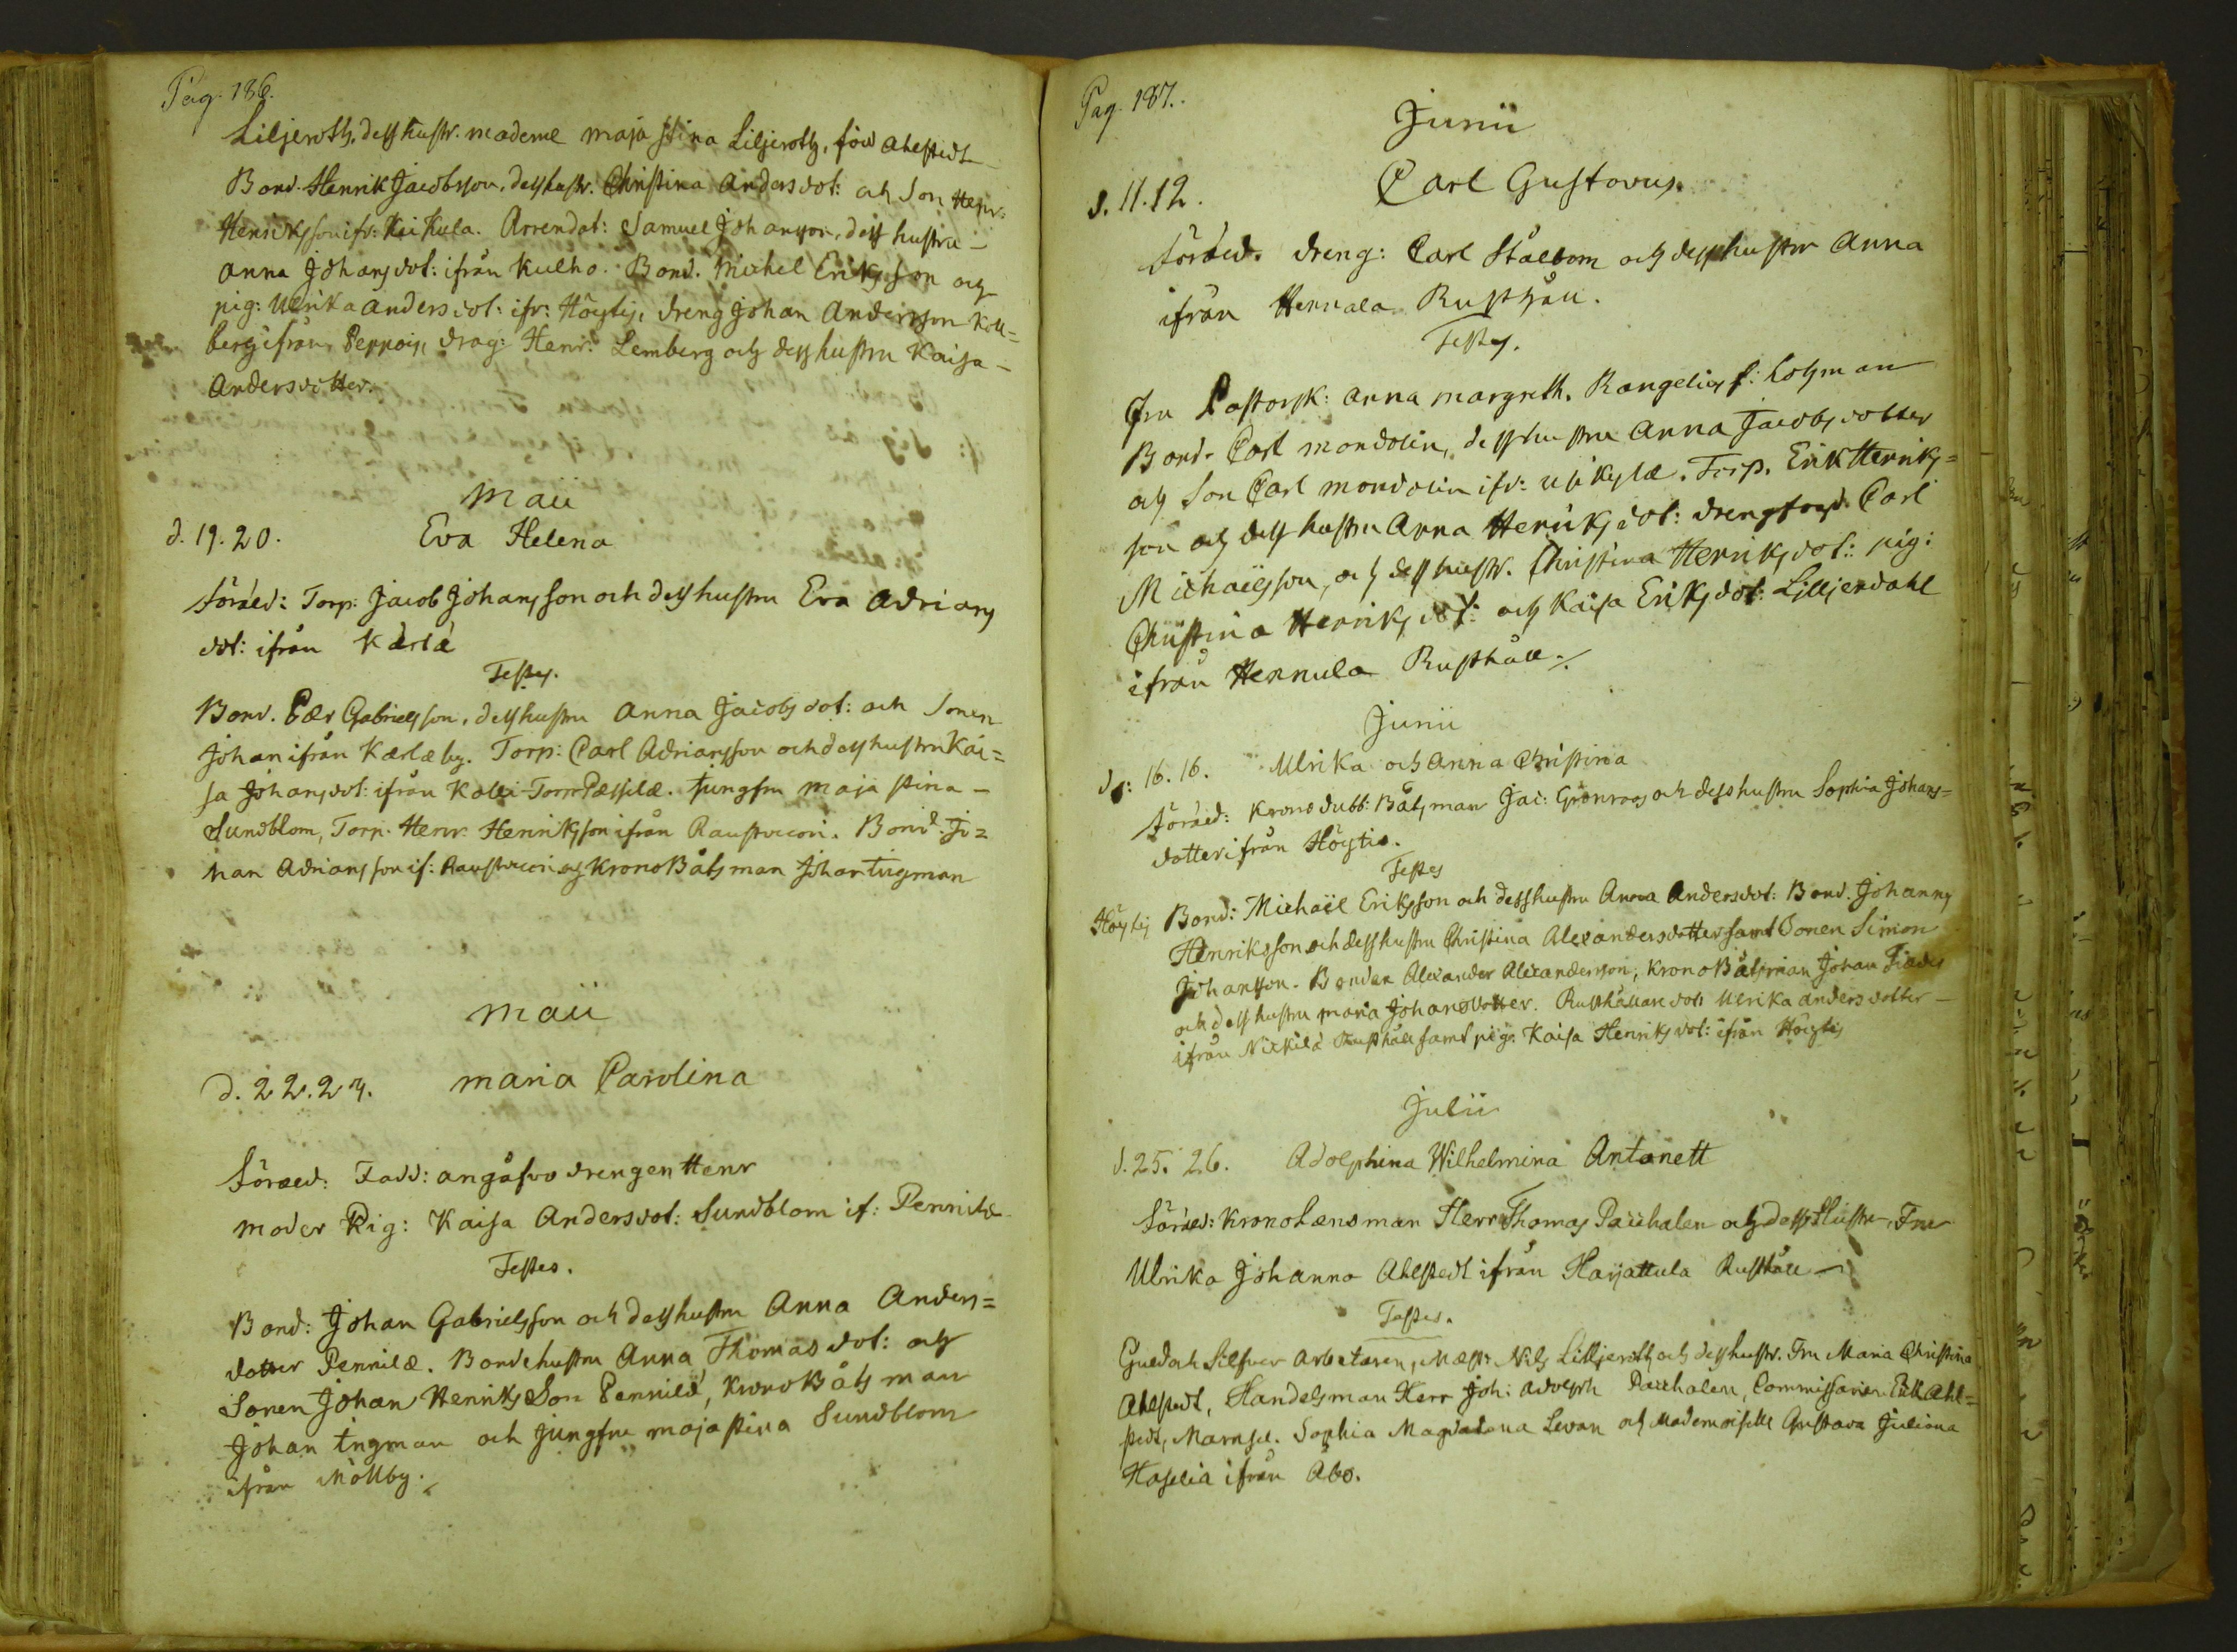 Pag. 186.
Liljeroth, dess hustr. madame maja Stina Liljeroth, född Ahlstedt
Bond. Henrik Jacobsson, dess hustr. Christina Andersdot: och Son Henr:
Henriksson ifr: Kukula. Arrendat: Samuel Johansson, dess hustru –
Anna Johansdot: ifrån Kulho. Bond. Michel Eriksson och
pig: Ulrika Andersdot: ifr: Höytis, dreng Johan Andersson Koll=
berg ifrån Peppois, drag: Henr: Lemberg och dess hustru Kaisa –
Andersdotter.
Maii
d. 19. 20. Eva Helena
Föräld: Torp: Jacob Johansson och dess hustru Eva Adrians
dot: ifrån Kärlä
Testes.
Bond. Pær Gabrielsson, dess hustru Anna Jacobsdot: och Sonen
Johan ifrån Kærlæ by. Torp: Carl Adriansson och dess hustru Kai=
sa Johansdot: ifrån Torp. Jungfru Maja Stina –
Sundblom, Torp. Henr. Henriksson ifrån Raustvuori. Bond. Jo=
han Adriansson if: Raustvuori och Krono Båtsman Johan Tugman
Maii
d. 22. 23. Maria Carolina
Föräld: Fadd: angåfvo drengen Henr
moder Pig: Kaisa Andersdot: Sundblom if: Pennilæ
Testes.
Bond: Johan Gabrielsson och dess hustru Anna Anders=
dotter Pennilæ. Bondehustru Anna Thomasdot: och
Sonen Johan Henriks Son Pennilä, Krono Båtsman
Johan Tugman och Jungfru maja Stina Sundblom
ifrån Möllby.
Pag. 187.
Junii
d. 11. 12. Carl Gustavus.
Föräld. dreng: Carl Stålbom och dess hustru Anna
ifrån Hennala Rusthåll.
Testes.
Fru Pastorsk: Anna Margreth. Rangelius f: Holzman
Bond. Carl Mondolin, dess hustru Anna Jacobsdotter
och Son Carl Mondolin ifr: Torp. Erik Henriks=
son och dess hustru Anna Henriksdot: Carl
Michaelsson, och dess hustr. Christina Henriksdot: pig:
Christina Henriksdot: och Kaisa Eriksdot: Lilljendahl
ifrån Hennula Rusthåll./.
Junii
d: 16. 16. Ulrika och Anna Christina
Föräld: Krono dubb: Båtsman Jac: Grönroos och dess hustru Sophia Johans=
dotter ifrån Höytis.
Testes
Höytis Bond: Michaël Eriksson och dess hustru Anna Andersdot: Bond. Johannes
Henriksson och dess hustru Christina Alexandersdotter samt Sonen Simon
Johansson. Bonden Alexander Alexandersson, Krono Båtsman Johan
och dess hustru Maria Johansdotter. Rusthållare dott Ulrika Andersdotter –
ifrån Nickilä Rusthåll samt pig: Kaisa Henriksdot: ifrån Höytis
Julii
d. 25. 26. Adolphina Wilhelmina Antonett
Föräld: Krono Lensman Herr Thomas Paichalen och dess Hustr. Fru
Ulrika Johanna Ahlstedt ifrån Harjattula Rusthåll –
Testes.
Guld och Silfver Arbetaren, Mæstr. Nils Lilljeroth och dess hustr. Fru Maria Christina
Ahlstedt, Handelsman Herr Joh: Adolph Paichalen, Commissarien Erik Ahl=
stedt, Mamsel. Sophia Magdalena Levan och Mademoiselle Gustava Juliana
Haselia ifrån Åbo.